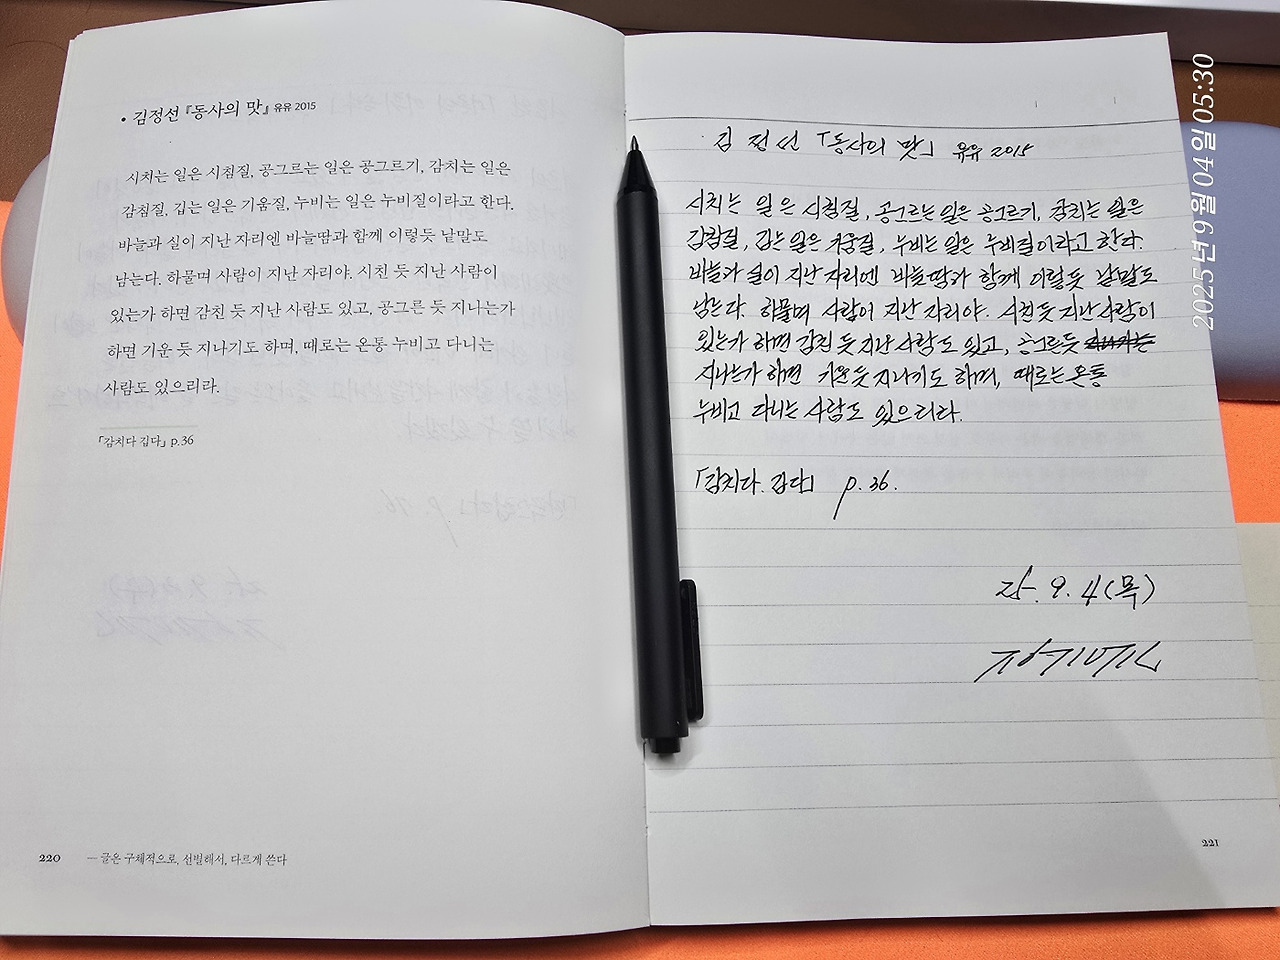 • 김정선 『동사의 맛』 유유 2015
시치는 일은 시침질, 공그르는 일은 공그르기, 감치는 일은
감침질, 깁는 일은 기움질, 누비는 일은 누비질이라고 한다.
바늘과 실이 지난 자리엔 바늘땀과 함께 이렇듯 낱말도
남는다. 하물며 사람이 지난 자리야. 시친 듯 지난 사람이
있는가 하면 감친 듯 지난 사람도 있고, 공그른 듯 지나는가
하면 기운 듯 지나기도 하며, 때로는 온통 누비고 다니는
사람도 있으리라.
「감치다 깁다」 p.36
220 — 글은 구체적으로, 선별해서, 다르게 쓴다
김정선 「동사의 맛」 유유 2015
시치는 일은 시침질, 공그르는 일은 공그르기, 감치는 일은
감침질, 깁는 일은 기움질, 누비는 일은 누비질이라고 한다.
바늘과 실이 지난 자리엔 바늘땀과 함께 이렇듯 낱말도
남는다. 하물며 사람이 지난 자리야. 시친 듯 지난 사람이
있는가 하면 감친 듯 지난 사람도 있고, 공그른 듯
지나는가 하면 기운 듯 지나기도 하며, 때로는 온통
누비고 다니는 사람도 있으리라.
「감치다. 깁다」 p.36.
25. 9. 4 (목)
221
2025년 9월 04일 05:30